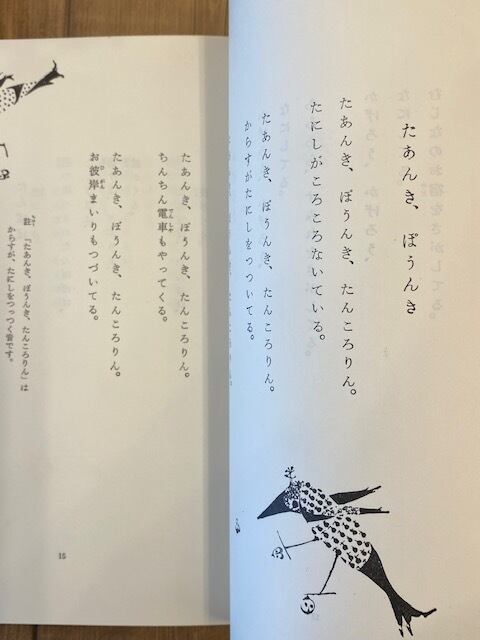 たあんき、ぽうんき
たあんき、ぽうんき、たんころりん。
たにしがころころないている。
たあんき、ぽうんき、たんころりん。
からすがたにしをつついてる。
たあんき、ぽうんき、たんころりん。
ちんちん電車もやってくる。
たあんき、ぽうんき、たんころりん。
お彼岸まいりもつづいてる。
註 「たあんき、ぽうんき、たんころりん」は
からすが、たにしをつっつく音です。
15